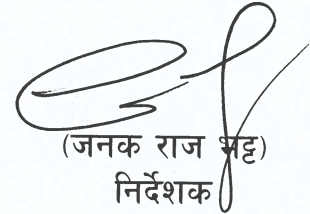 (जनक राज भट्ट)
निर्देशक